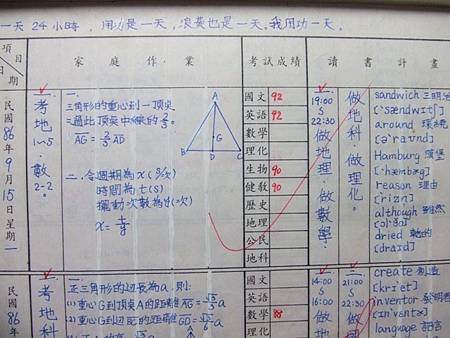 一天24小時，用功是一天，浪費也是一天。我用功一天。
項目
日
家庭作業
考試成績
讀書計畫
民國86年9月15日星期一
考地1~5、數2-2。
一.
三角形的重心到一頂点
=過此頂点中線的2/3。
AG = 2/3 AD
A
G
B
D
C
二.令週期為x(秒/次)
時間為t(s)
擺動次數為n(次)
x = t/n
國文 92
英語 92
數學
理化
生物 90
健教 90
歷史
地理
公民
地科
19:00
22:30
做地理、做數學。
做地科、做理化。
sandwich 三明治
around 環繞
[ə'raʊnd]
Hamburg 漢堡
reason 理由
[rizn]
although 雖然
dried 乾的
[draɪd]
民國86年
考地科
一.正三角形的邊長為a, 則:
(1)重心G到頂点A的距離
(2)重心G到邊
國文
英語
數學 88
理化
14:00
16:00
讀地
21:00
22:30
做國
create 創造
[krɪ'et]
inventor 發明者
language 語言